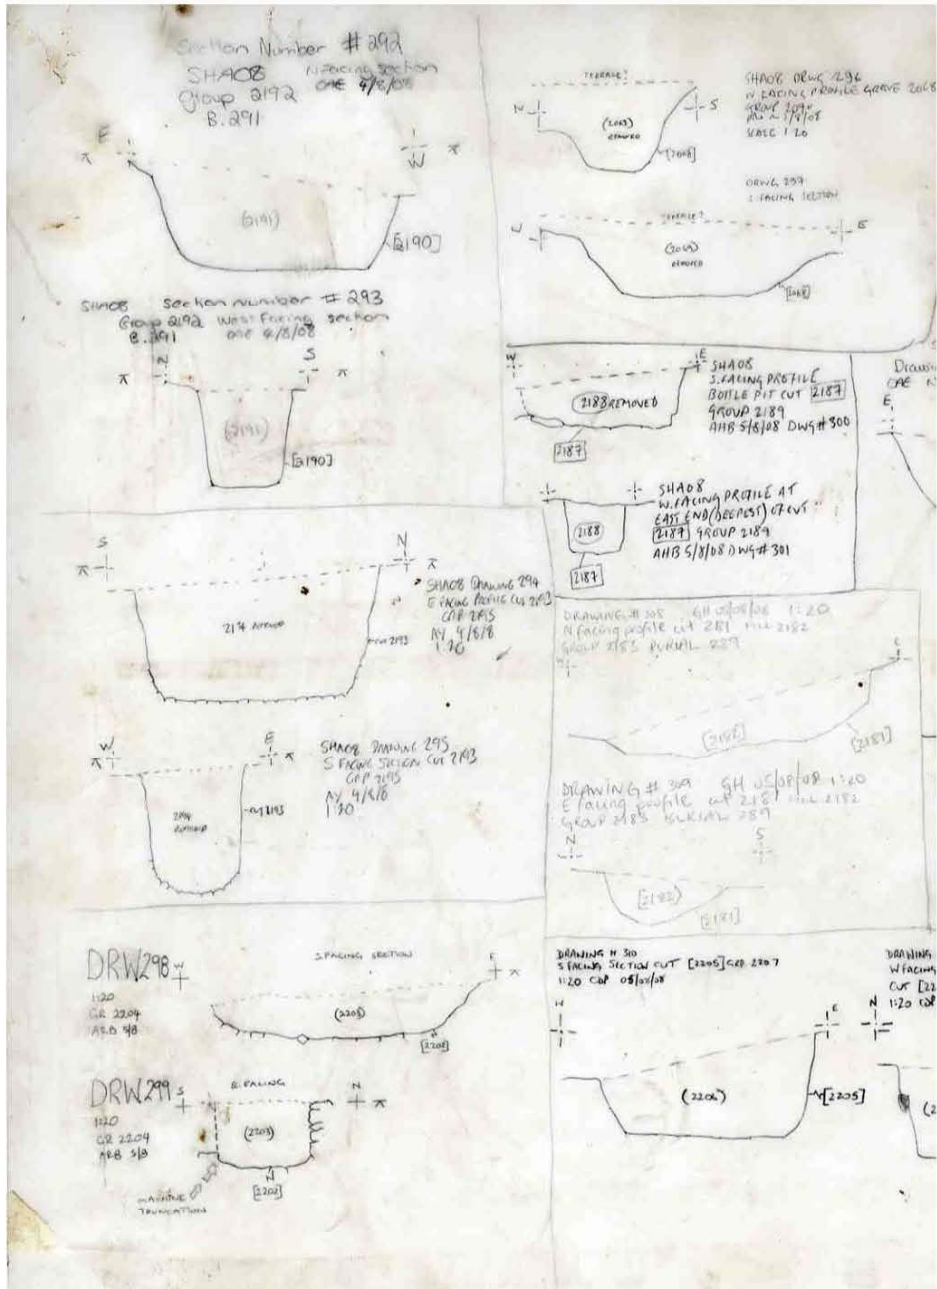 Section Number # 292
SHA08 N Facing section
Group 2192 OAE 4/8/08
B.291
E
W
(2191)
[2190]
SHA08 section number # 293
Group 2192 West Facing section
B.291 OAE 4/8/08
N
S
(2191)
[2190]
S
N
SHA08 DRAWING 294
E FACING PROFILE CUT 2193
GRP 2195
AY 4/8/8
1:20
2194 REMOVED
CUT 2193
W
E
SHA08 DRAWING 295
S FACING SECTION CUT 2193
GRP 2195
AY 4/8/8
1:20
2194
REMOVED
CUT 2193
DRW298
S.FACING SECTION
W
E
1:20
GR 2204
ARB 5/8
(2203)
[2202]
DRW299
E.FACING
S
N
1:20
GR 2204
ARB 5/8
(2203)
[2202]
MACHINE
TRUNCATION
TERRACE?
N
S
SHA08 DRWG 296
N FACING PROFILE GRAVE 2068
GROUP
SCALE 1:20
(2069)
REMOVED
[2068]
DRWG 297
S FACING SECTION
TERRACE?
W
E
(2069)
REMOVED
[2068]
W
E
SHA08
S.FACING PROFILE
BOTTLE PIT CUT 2187
GROUP 2189
AHB 5/8/08 DWG# 300
2188 REMOVED
2187
SHA08
W.FACING PROFILE AT
EAST END (DEEPEST) OF CUT
2187 GROUP 2189
AHB 5/8/08 DWG# 301
2188
2187
Drawin
OAE N
E
DRAWING # 308 GH 05/08/08 1:20
N facing profile cut 2181 FILL 2182
GROUP 2183 BURIAL 289
(2181)
DRAWING # 309 GH 05/08/08 1:20
E facing profile cut 2181 FILL 2182
GROUP 2183 BURIAL 289
N
S
[2182)
[2181]
DRAWING # 310
S FACING SECTION CUT [2205] GRP 2207
1:20 CDP 05/08/08
W
E
(2206)
[2205]
DRAWING
W FACING
CUT [22
1:20 CDP
N
(2